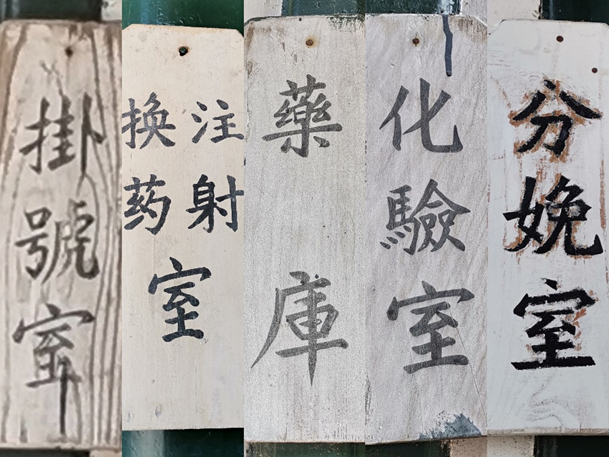 掛號室
注射
换药
室
藥庫
化驗室
分娩室